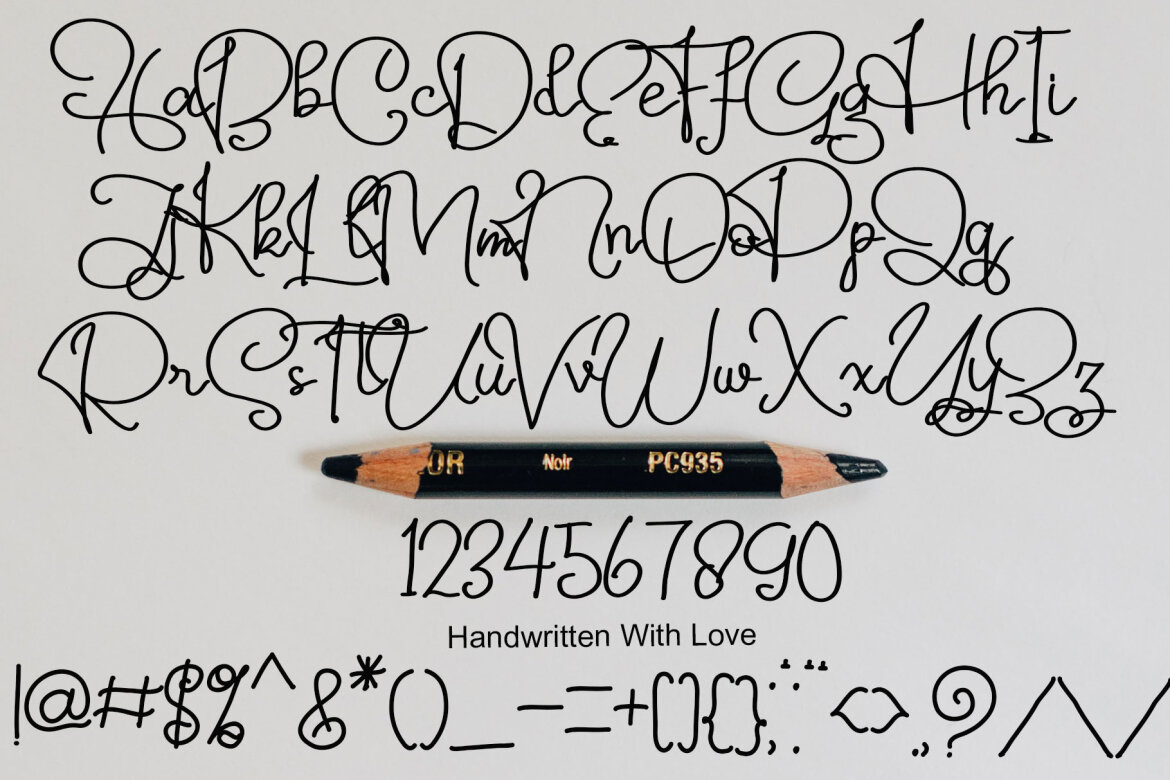 AaBbCcDdEeFfGgHhIi
JjKkLlMmNnOoPpQq
RrSsTtUuVvWwXxYyZz
OR Noir PC935
1234567890
Handwritten With Love
!@#$%^&*()_-=+[]{};:'"<>,.?/\/